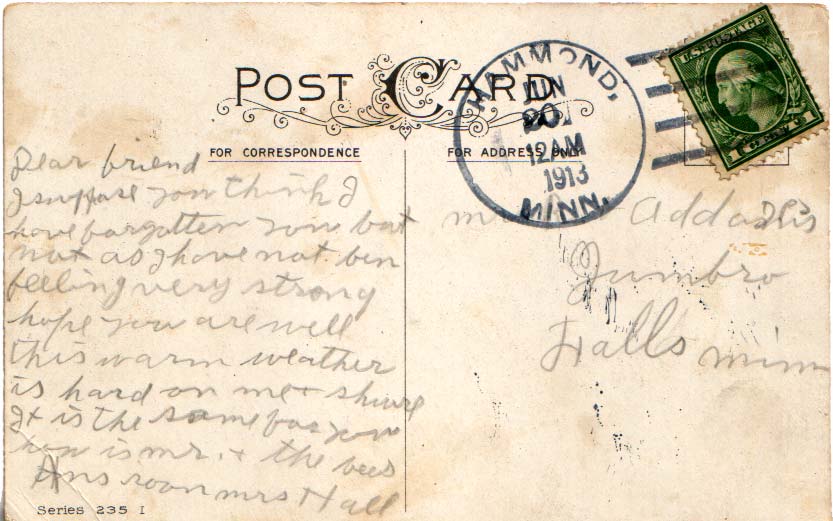 POST CARD
FOR CORRESPONDENCE
FOR ADDRESS ONLY
HAMMOND,
JUN
20
12AM
1913
MINN.
U.S. POSTAGE
1 CENT 1
Dear friend
I suppose you think I
have forgotten you but
not as I have not ben
feeling very strong
hope you are well
this warm weather
is hard on me + shure
It is the same for you
how is mr. + the bees
Ans soon mrs Hall
Addadlis
Zumbro
Falls minn
Series 235 I